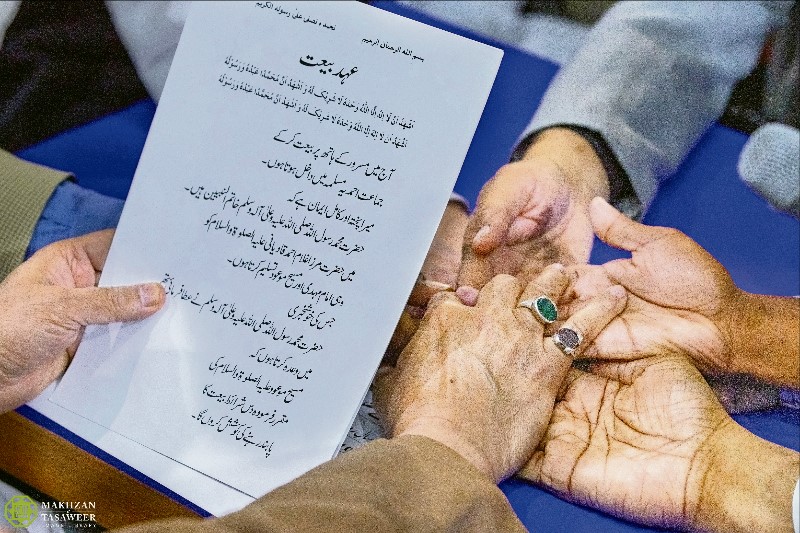 نحمده و نصلی علیٰ رسوله الکریم
بسم الله الرحمان الرحیم
عہد بیعت
اَشْهَدُ اَنْ لَّا اِلٰهَ اِلَّا اللّٰهُ وَحْدَهٗ لَا شَرِیْکَ لَهٗ وَ اَشْهَدُ اَنَّ مُحَمَّدًا عَبْدُهٗ وَ رَسُوْلُهٗ
اَشْهَدُ اَنْ لَّا اِلٰهَ اِلَّا اللّٰهُ وَحْدَهٗ لَا شَرِیْکَ لَهٗ وَ اَشْهَدُ اَنَّ مُحَمَّدًا عَبْدُهٗ وَ رَسُوْلُهٗ
آج میں مسرور کے ہاتھ پر بیعت کر کے
جماعت احمدیہ مسلمہ میں داخل ہوتا ہوں۔
میرا پختہ اور کامل ایمان ہے کہ
حضرت محمد رسول اللہ صلی اللہ علیہ وعلیٰ آلہ وسلم خاتم النبیین ہیں۔
میں حضرت مرزا غلام احمد قادیانی علیہ الصلوٰۃ والسلام کو
وہی امام مہدی اور مسیح موعود تسلیم کرتا ہوں۔
جس کی خوشخبری
حضرت محمد رسول اللہ صلی اللہ علیہ وعلیٰ آلہ وسلم نے عطا فرمائی تھی
میں وعدہ کرتا ہوں کہ
مسیح موعود علیہ الصلوٰۃ والسلام کی
مقرر فرمودہ دس شرائط بیعت کا
پابند رہنے کی کوشش کروں گا۔
MAKHZAN
TASAWEER
IMAGE LIBRARY